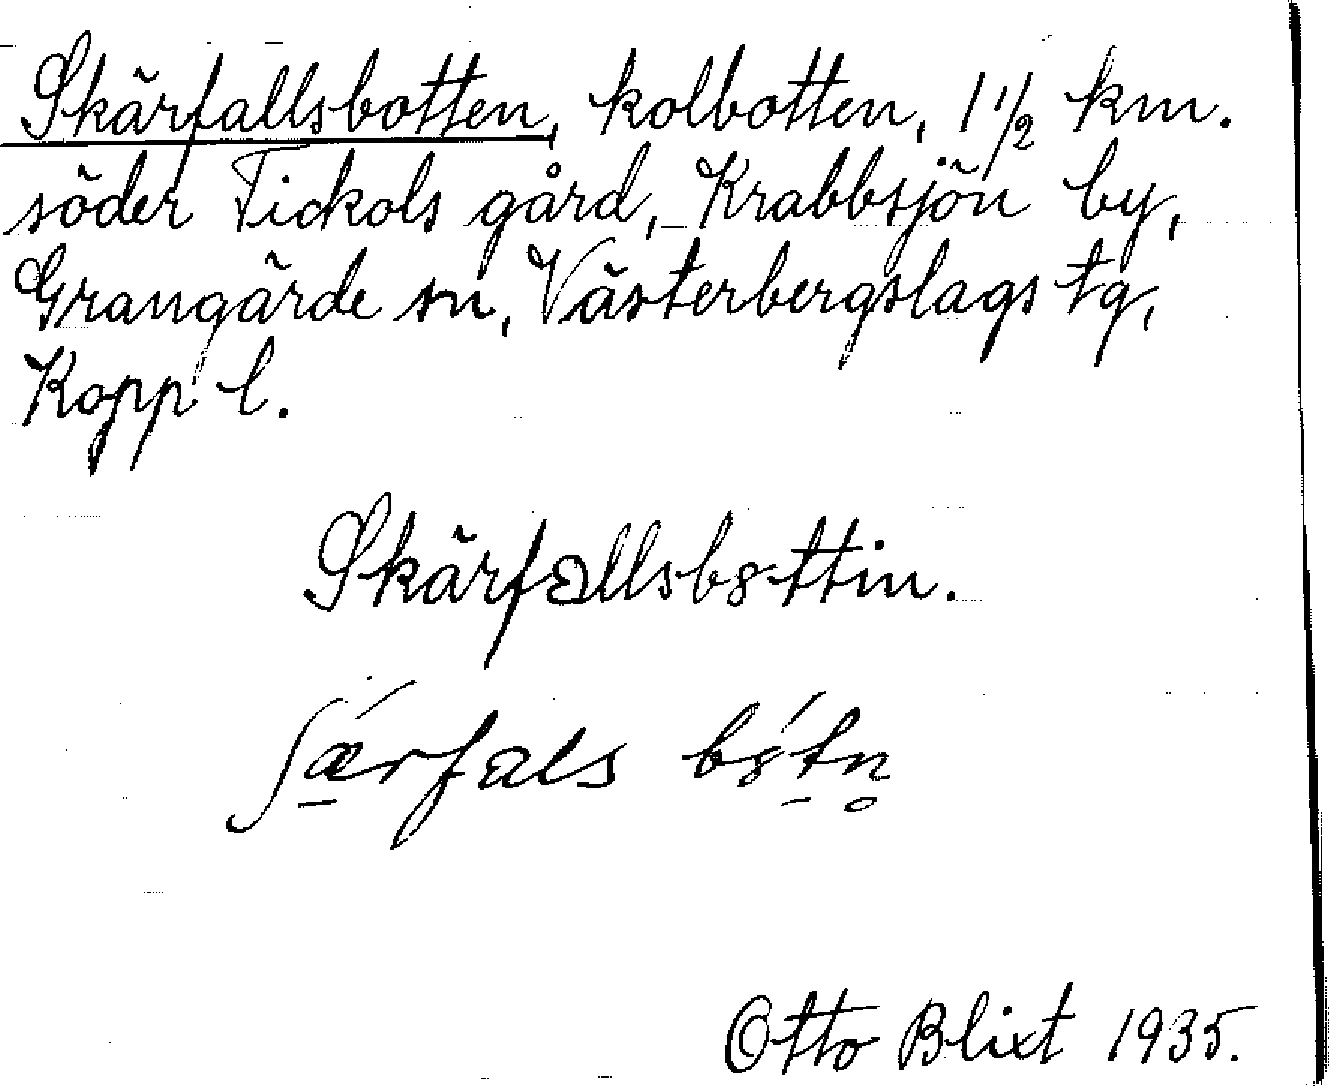 Skärfallsbotten, kolbotten, 1 1/2 km.
söder Tickols gård, Krabbsjön by,
Grangärde sn, Västerbergslags tg,
Kopp l.
Skärfallsbottin.
ʃǽrfals bótn̥
Otto Blixt 1935.